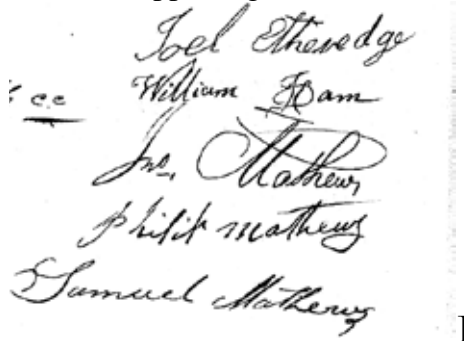 Joel Etheredge
c.c William Ham
Jno. Mathews
Philip mathews
Samuel Mathews